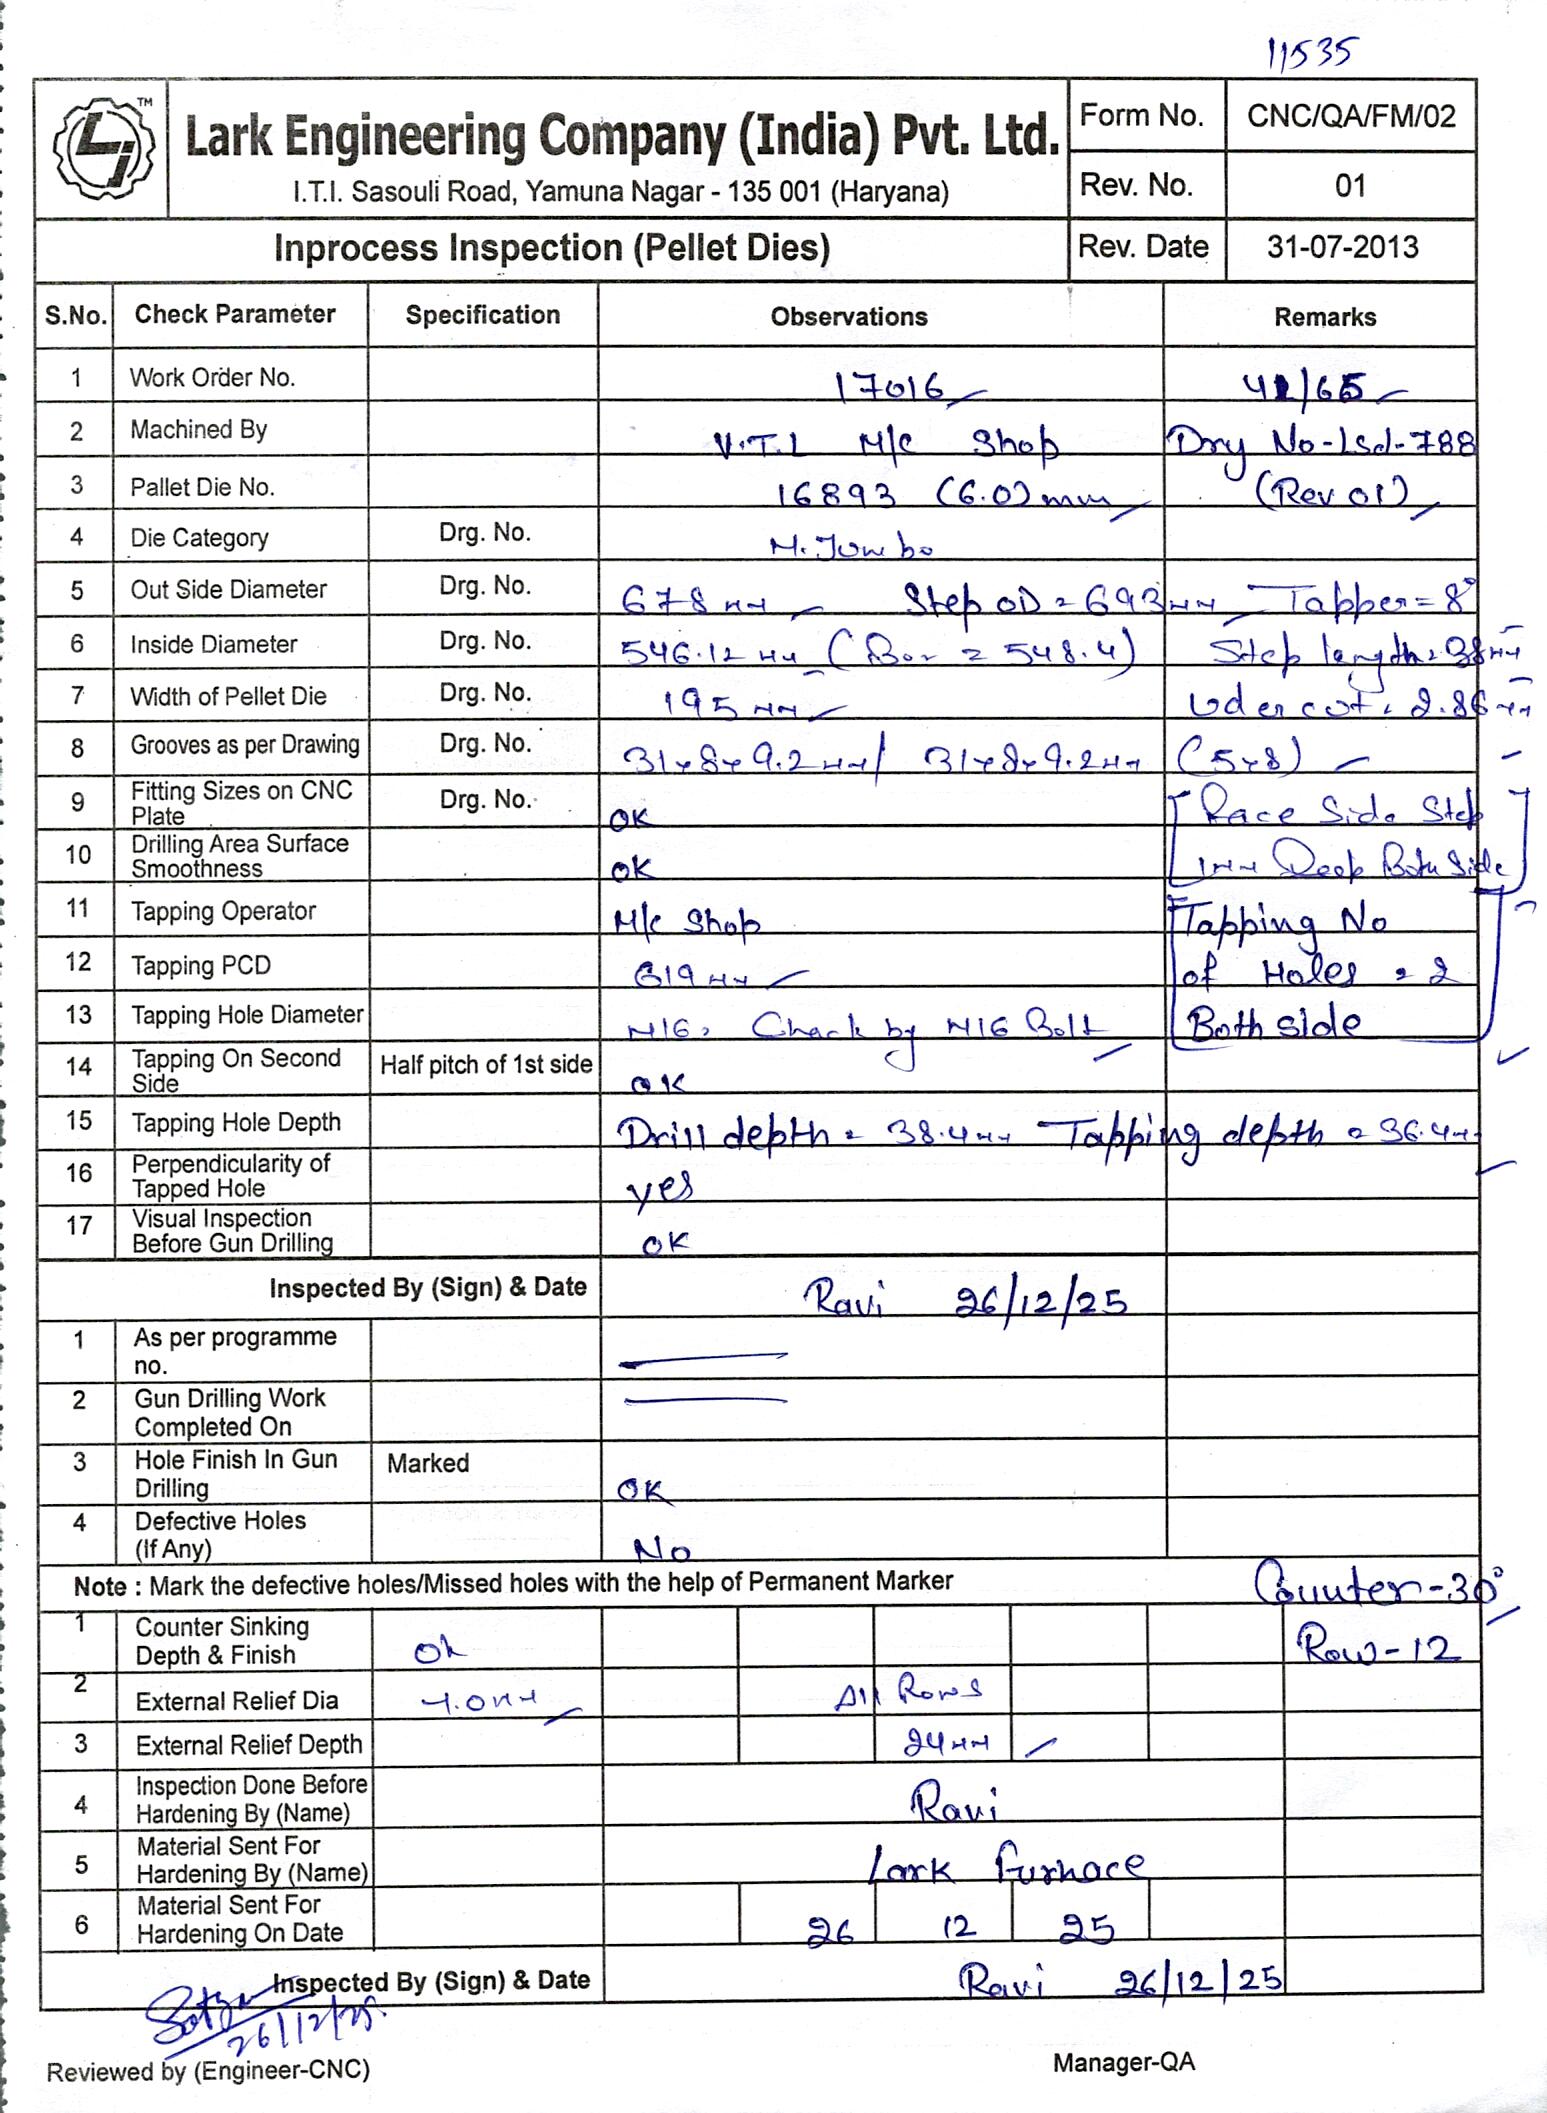 11535
TM
Lark Engineering Company (India) Pvt. Ltd.
I.T.I. Sasouli Road, Yamuna Nagar - 135 001 (Haryana)
Form No. CNC/QA/FM/02
Rev. No. 01
Inprocess Inspection (Pellet Dies) Rev. Date 31-07-2013
S.No. Check Parameter Specification Observations Remarks
1 Work Order No. 17016 /65
2 Machined By V.T.L M/c Shop Drg No-Lsd-788
3 Pallet Die No. 16893 (6.0) mm (Rev 01)
4 Die Category Drg. No. M. Jumbo
5 Out Side Diameter Drg. No. 678 mm Step OD = 693 mm Tapper = 8°
6 Inside Diameter Drg. No. 546.12 mm (Bor = 548.4) Step length = 38 mm
7 Width of Pellet Die Drg. No. 195 mm Uder cut = 2.86 mm
8 Grooves as per Drawing Drg. No. 31x8x9.2 mm / 31x8x9.2 mm (5x8)
9 Fitting Sizes on CNC Plate Drg. No. OK [Race Side Step
10 Drilling Area Surface Smoothness OK 1mm Deep Both Side]
11 Tapping Operator M/c Shop [Tapping No
12 Tapping PCD 619 mm of Holes = 2
13 Tapping Hole Diameter M16, Chack by M16 Bolt Both side]
14 Tapping On Second Side Half pitch of 1st side OK
15 Tapping Hole Depth Drill depth = 38.4mm Tapping depth = 36.4mm
16 Perpendicularity of Tapped Hole yes
17 Visual Inspection Before Gun Drilling OK
Inspected By (Sign) & Date Ravi 26/12/25
1 As per programme no.
2 Gun Drilling Work Completed On
3 Hole Finish In Gun Drilling Marked OK
4 Defective Holes (If Any) No
Note : Mark the defective holes/Missed holes with the help of Permanent Marker Counter-30°
1 Counter Sinking Depth & Finish Ok Row-12
2 External Relief Dia All Rows
3 External Relief Depth 24mm
4 Inspection Done Before Hardening By (Name) Ravi
5 Material Sent For Hardening By (Name) Lark Furnace
6 Material Sent For Hardening On Date 26 12 25
Inspected By (Sign) & Date Ravi 26/12/25
26/12/25
Reviewed by (Engineer-CNC) Manager-QA